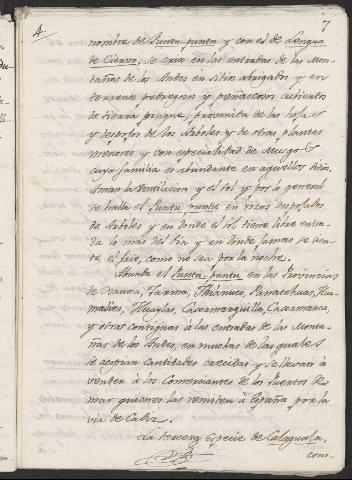 4.
7
nombre de Puntu-puntu y con el de Lengua
de Ciervo, se cria en las entradas de las Mon-
tañas de los Andes en sitios abrigados y en
terrenos pedregosos y peñascosos cubiertos
de tierra pingue, provenida de las hojas
y despojos de los Arboles y de otras plantas
menores y con especialidad de Musgos
cuya familia es abundante en aquellos sitios.
Aman la Ventilacion y el sol y por lo general
se halla el Puntu puntu en riscos despoblados
de Arboles y en donde el sol tiene libre entra-
da lo mas del dia y en donde jamas se sien-
te el frio, como no sea por la noche.
Abunda el Puntu puntu en las Provincias
de Xauxa, Tarma, Huánuco, Panatahuas, Hua-
malies, Huaylas, Caxamarquilla, Caxamarca,
y otras contiguas á las entradas de las Monta-
ñas de los Andes, en muchas de las quales
se acopian Cantidades crecidas y se llevan à
vender à los Comerciantes de los Puertos de
mar quienes las remiten à España por la
via de Cadiz.
La tercera especie de Calaguala,
cono-